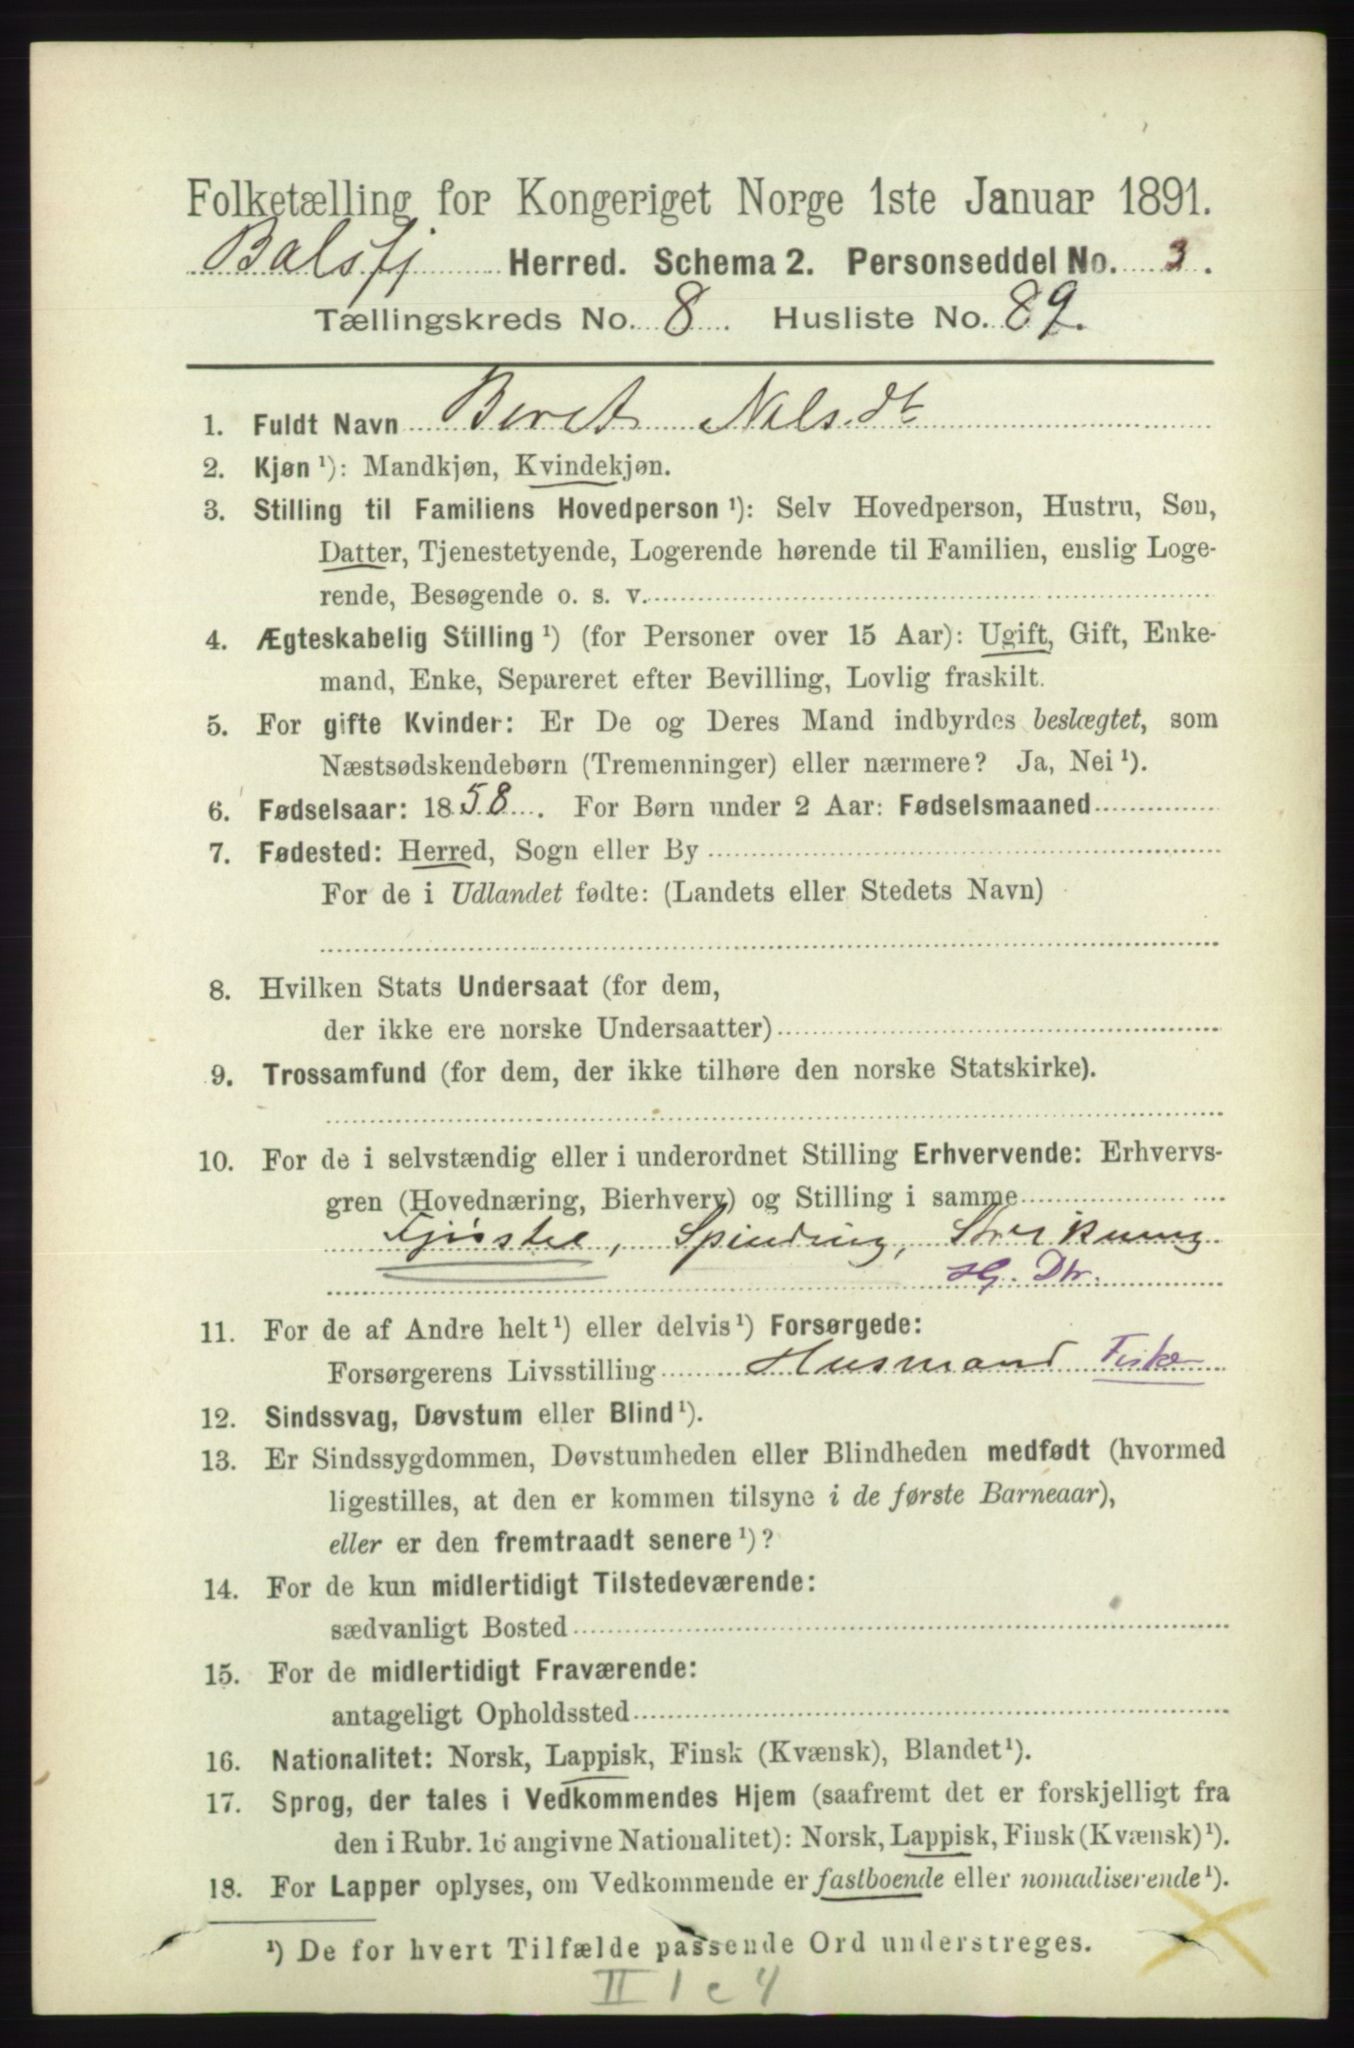 Folketælling for Kongeriget Norge 1ste Januar 1891.
Balsfj Herred. Schema 2. Personseddel No. 3.
Tællingskreds No. 8. Husliste No. 89.
1. Fuldt Navn Beret Nilsdt
2. Kjøn ¹): Mandkjøn, Kvindekjøn.
3. Stilling til Familiens Hovedperson ¹): Selv Hovedperson, Hustru, Søn,
Datter, Tjenestetyende, Logerende hørende til Familien, enslig Loge-
rende, Besøgende o. s. v.
4. Ægteskabelig Stilling ¹) (for Personer over 15 Aar): Ugift, Gift, Enke-
mand, Enke, Separeret efter Bevilling, Lovlig fraskilt.
5. For gifte Kvinder: Er De og Deres Mand indbyrdes beslægtet, som
Næstsødskendebørn (Tremenninger) eller nærmere? Ja, Nei ¹).
6. Fødselsaar: 1858. For Børn under 2 Aar: Fødselsmaaned
7. Fødested: Herred, Sogn eller By
For de i Udlandet fødte: (Landets eller Stedets Navn)
8. Hvilken Stats Undersaat (for dem,
der ikke ere norske Undersaatter)
9. Trossamfund (for dem, der ikke tilhøre den norske Statskirke).
10. For de i selvstændig eller i underordnet Stilling Erhvervende: Erhvervs-
gren (Hovednæring, Bierhverv) og Stilling i samme
Fjøsstel, Spinding, Strikning
Hg. Dtr.
11. For de af Andre helt ¹) eller delvis ¹) Forsørgede:
Forsørgerens Livsstilling Husmand Fisker
12. Sindssvag, Døvstum eller Blind ¹).
13. Er Sindssygdommen, Døvstumheden eller Blindheden medfødt (hvormed
ligestilles, at den er kommen tilsyne i de første Barneaar),
eller er den fremtraadt senere ¹)?
14. For de kun midlertidigt Tilstedeværende:
sædvanligt Bosted
15. For de midlertidigt Fraværende:
antageligt Opholdssted
16. Nationalitet: Norsk, Lappisk, Finsk (Kvænsk), Blandet ¹).
17. Sprog, der tales i Vedkommendes Hjem (saafremt det er forskjelligt fra
den i Rubr. 16 angivne Nationalitet): Norsk, Lappisk, Finsk (Kvænsk) ¹).
18. For Lapper oplyses, om Vedkommende er fastboende eller nomadiserende ¹).
¹) De for hvert Tilfælde passende Ord understreges.
II 1 c 4